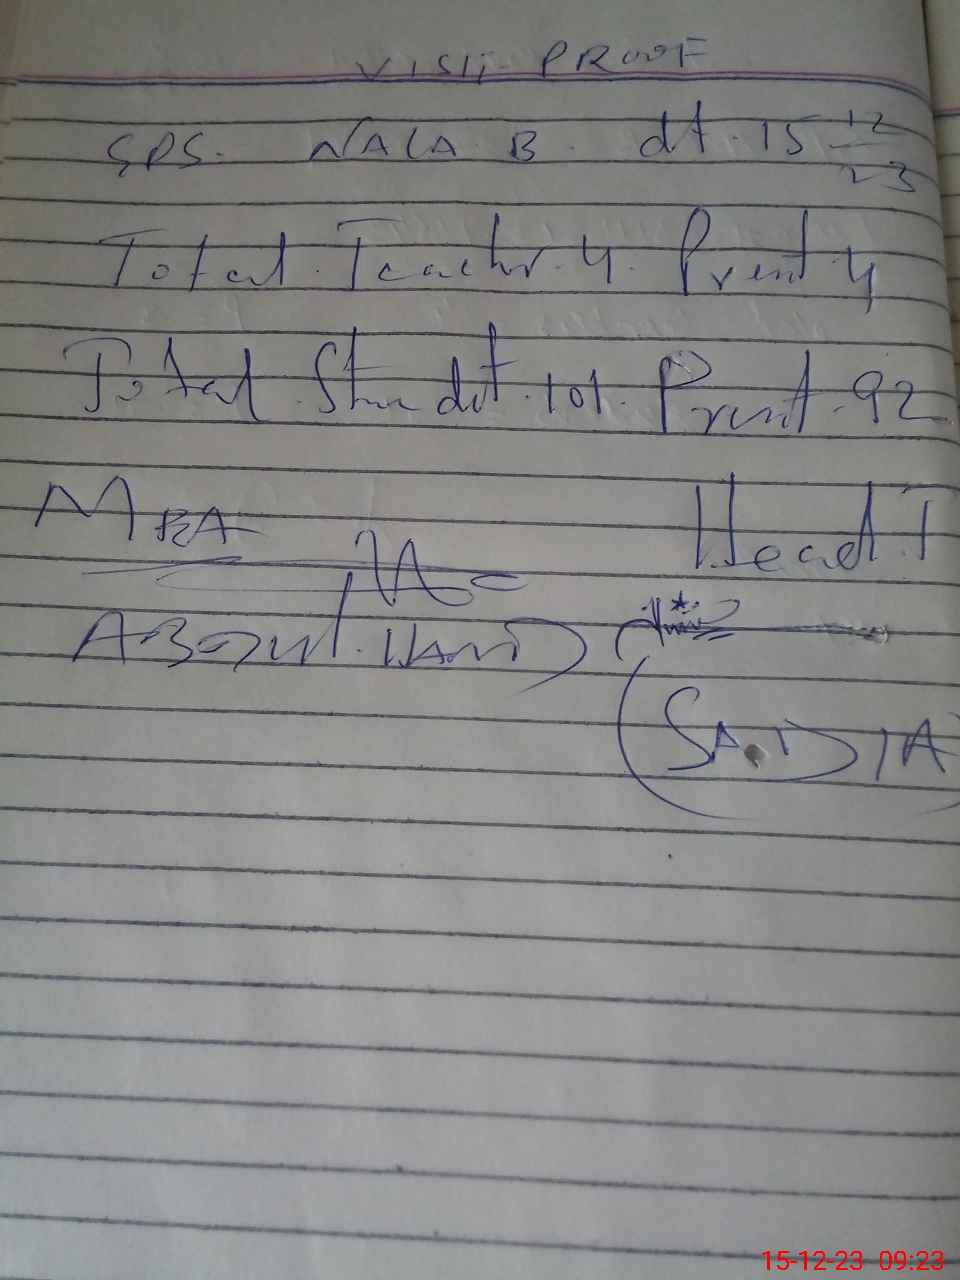 VISIT PROOF
GPS. NALA B. dt. 15 12/23
Total Teacher. 4. Present 4
Total Student. 101. Present. 92
MEA Head T
ABDUL HAMID
(SADIA)
15-12-23 09:23